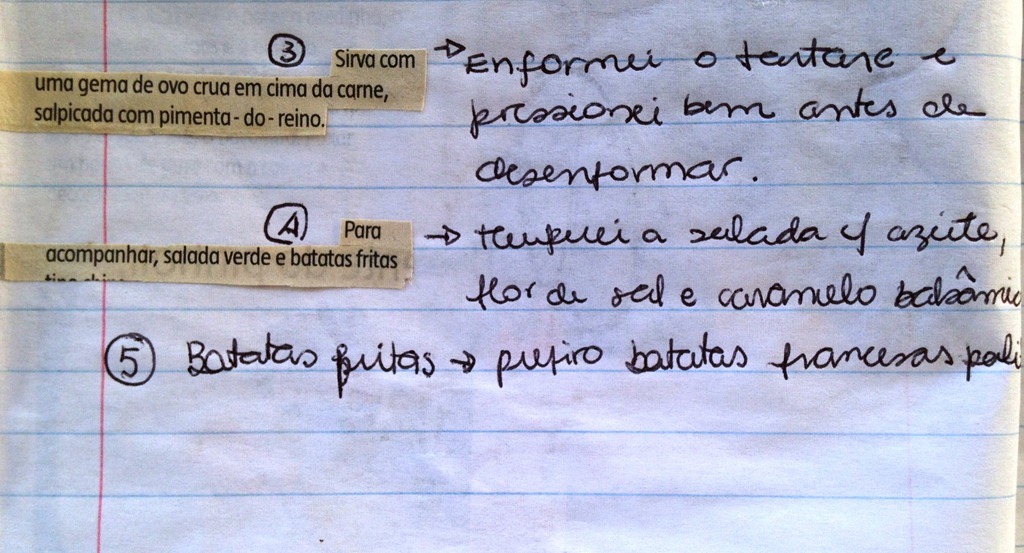 ③ Sirva com → Enformei o tartare e
uma gema de ovo crua em cima da carne,
salpicada com pimenta-do-reino.
pressionei bem antes de
desenformar.
Ⓐ Para → temperei a salada c/ azeite,
acompanhar, salada verde e batatas fritas
flor de sal e caramelo balsâmic
⑤ Batatas fritas → prefiro batatas francesas pali